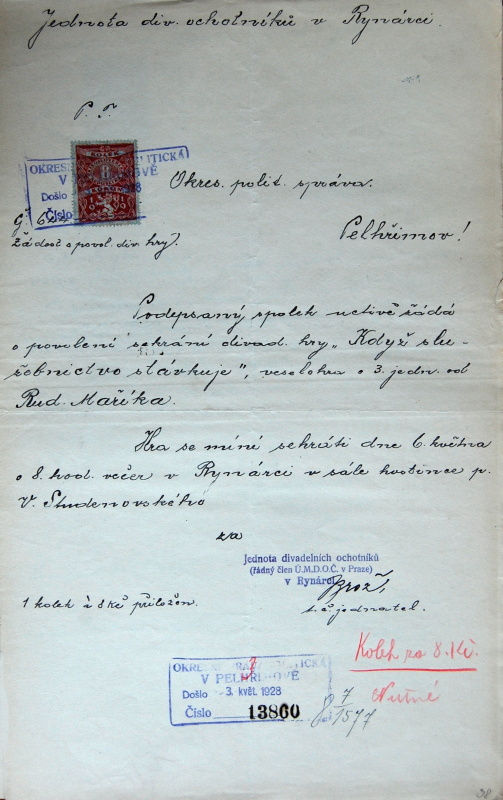 Jednota div. ochotníků v Rynárci.
P. T.
OKRESNÍ POLITICKÁ
V
Došlo
Číslo
8
Okres. polit. správa.
Žádost o povol. div. hry.
Pelhřimov!
Podepsaný spolek uctivě žádá
o povolení sehrání divad. hry „Když slu-
žebnictvo stávkuje", veselohra o 3. jedn. od
Rud. Maříka.
Hra se míní sehráti dne 6. května
o 8. hod. večer v Rynárci v sále hostince p.
V. Studenovského
za
Jednota divadelních ochotníků
(řádný člen Ú.M.D.O.Č. v Praze)
v Rynárci
Brož,
t. č. jednatel.
1 kolek à 8 Kč přiložen.
Kolek za 8. Kč.
OKRESNÍ SPRÁVA POLITICKÁ
V PELHŘIMOVĚ
Došlo - 3. květ. 1928
Číslo 13860
7
1577